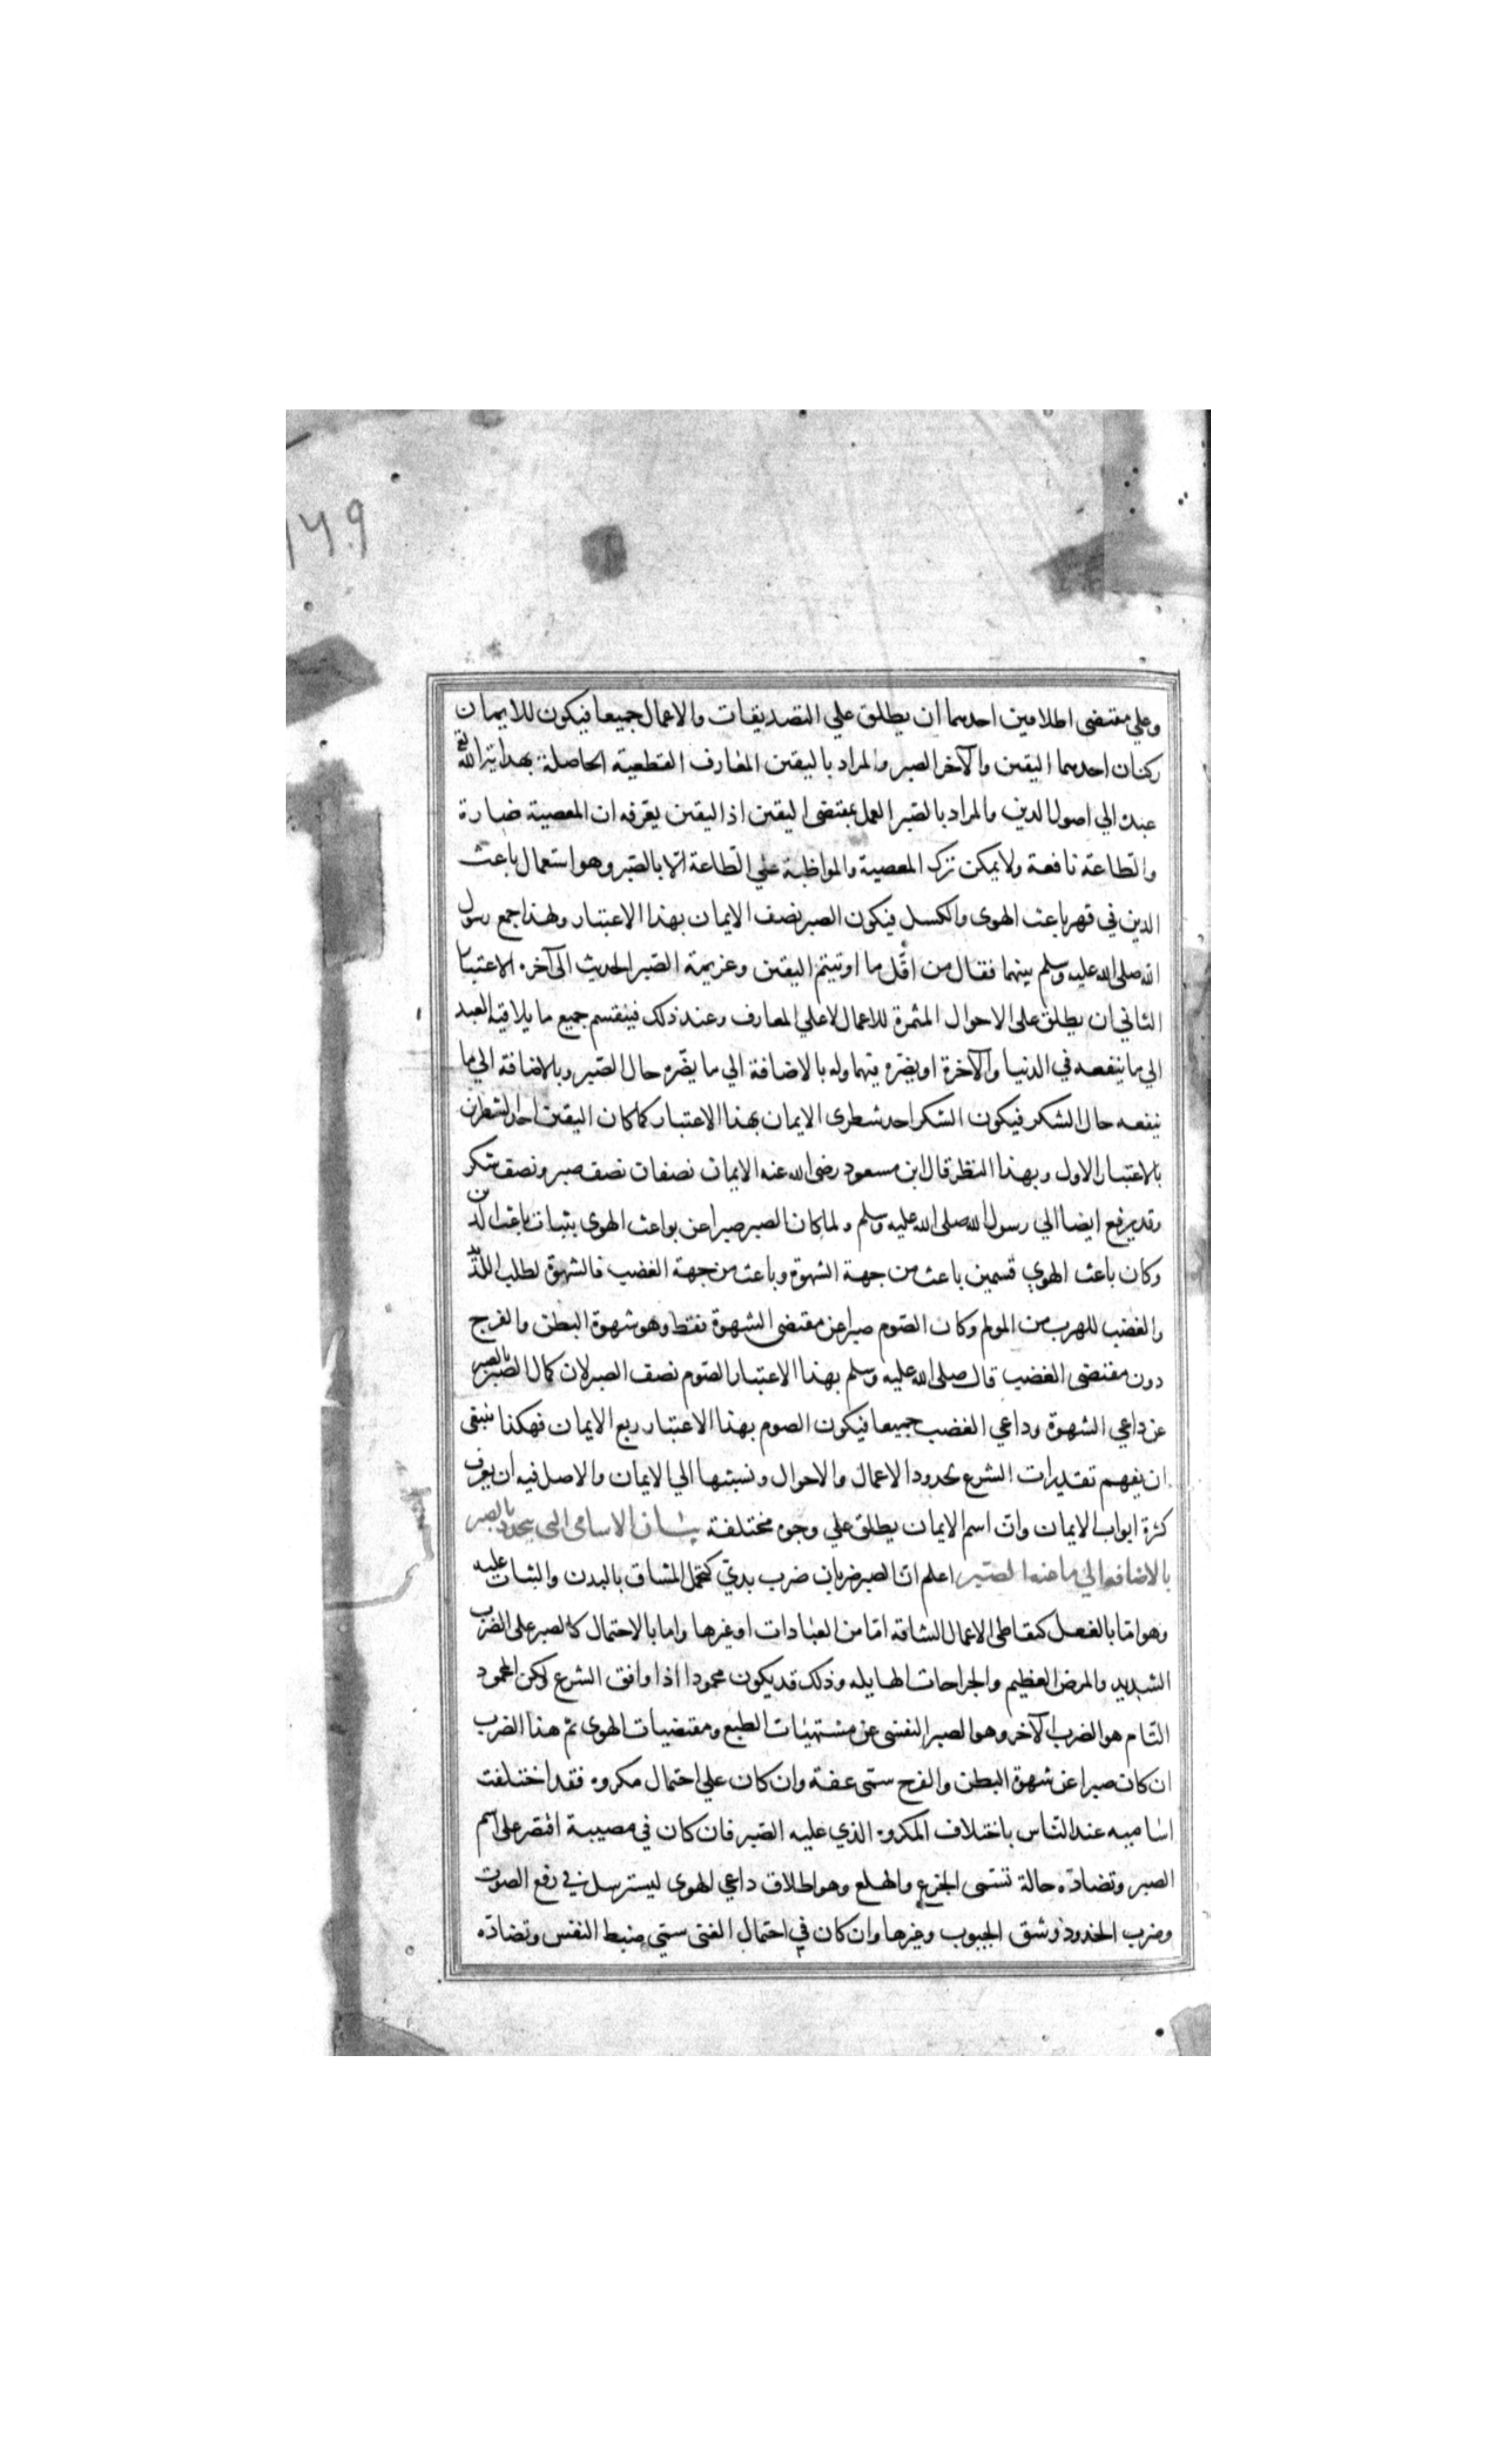 ١٦٩
وعلي مقتضى اطلاقين احدهما ان يطلق علي التصديقات والاعمال جميعا فيكون للايمان
ركنان احدهما اليقين والآخر الصبر والمراد باليقين المعارف القطعية الحاصلة بهداية الله تع
عبده الي اصول الدين والمراد بالصبر العمل بمقتضى اليقين اذ اليقين يعرفه ان المعصية ضارة
والطاعة نافعة ولا يمكن ترك المعصية والمواظبة علي الطاعة الا بالصبر وهو استعمال باعث
الدين في قهر باعث الهوى والكسل فيكون الصبر نصف الايمان بهذا الاعتبار ولهذا جمع رسول
الله صلى الله عليه وسلم بينهما فقال من اقل ما اوتيتم اليقين وعزيمة الصبر الحديث الى آخره الاعتبار
الثاني ان يطلق على الاحوال المثمرة للاعمال لا علي المعارف وعند ذلك فينقسم جميع ما يلاقيه العبد
الي ما ينفعه في الدنيا والآخرة او يضره فيهما وله بالاضافة الي ما يضره حال الصبر وبالاضافة الي ما
ينفعه حال الشكر فيكون الشكر احد شطري الايمان بهذا الاعتبار كما كان اليقين احد الشطرين
بالاعتبار الاول وبهذا النظر قال ابن مسعود رضى الله عنه الايمان نصفان نصف صبر ونصف شكر
وقد يرفع ايضا الي رسول الله صلى الله عليه وسلم ولما كان الصبر صبرا عن بواعث الهوى بثبات باعث الدين
وكان باعث الهوي قسمين باعث من جهة الشهوة وباعث من جهة الغضب فالشهوة لطلب اللذيذ
والغضب للهرب من المولم وكان الصوم صبرا عن مقتضى الشهوة فقط وهو شهوة البطن والفرج
دون مقتضى الغضب قال صلى الله عليه وسلم بهذا الاعتبار الصوم نصف الصبر لان كمال الصبر بالصبر
عن داعي الشهوة وداعي الغضب جميعا فيكون الصوم بهذا الاعتبار ربع الايمان فهكذا ينبغى
ان يفهم تقديرات الشرع بحدود الاعمال والاحوال ونسبتها الي الايمان والاصل فيه ان يعرف
كثرة ابواب الايمان وان اسم الايمان يطلق علي وجوه مختلفة بيان الاسامى التى يتجدد بالصبر
بالاضافة الي ما عنه الصبر اعلم ان الصبر ضربان ضرب بدني كتحمل المشاق بالبدن والثبات عليه
وهو اما بالفعل كتعاطي الاعمال الشاقه اما من العبادات او غيرها واما بالاحتمال كالصبر على الضرب
الشديد والمرض العظيم والجراحات الهايله وذلك قد يكون محمودا اذا وافق الشرع لكن المحمود
التام هو الضرب الآخر وهو الصبر النفسى عن مشتهيات الطبع ومقتضيات الهوى ثم هذا الضرب
ان كان صبرا عن شهوة البطن والفرج سمى عفة وان كان علي احتمال مكروه فقد اختلفت
اساميه عند الناس باختلاف المكروه الذي عليه الصبر فان كان في مصيبة اقتصر على اسم
الصبر وتضاده حالة تسمى الجزع والهلع وهو اطلاق داعي الهوى ليسترسل في رفع الصوت
وضرب الخدود وشق الجيوب وغيرها وان كان في احتمال الغنى سمي ضبط النفس وتضاده